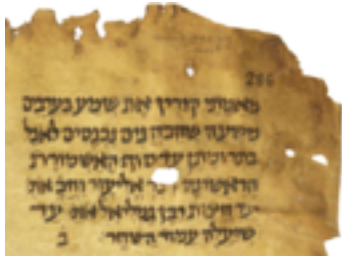 286
מאמתי קורין את שמע בערבים
משעה שהכהנים נכנסים לאכל
בתרומתן עד סוף האשמורת
הראשונה דבר אליעזר וחכ את
עד חצות רבן גמליאל אומ עד
שיעלה עמוד השחר ב